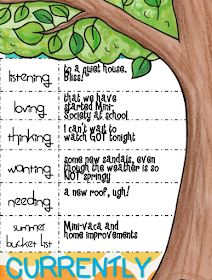 listening
to a quiet house.
Bliss!
loving
that we have
started Mini-
Society at school
thinking
I can't wait to
watch GOT tonight
wanting
some new sandals, even
though the weather is so
NOT springy
needing
a new roof, ugh!
summer
bucket list
Mini-vaca and
home improvements
CURRENTLY